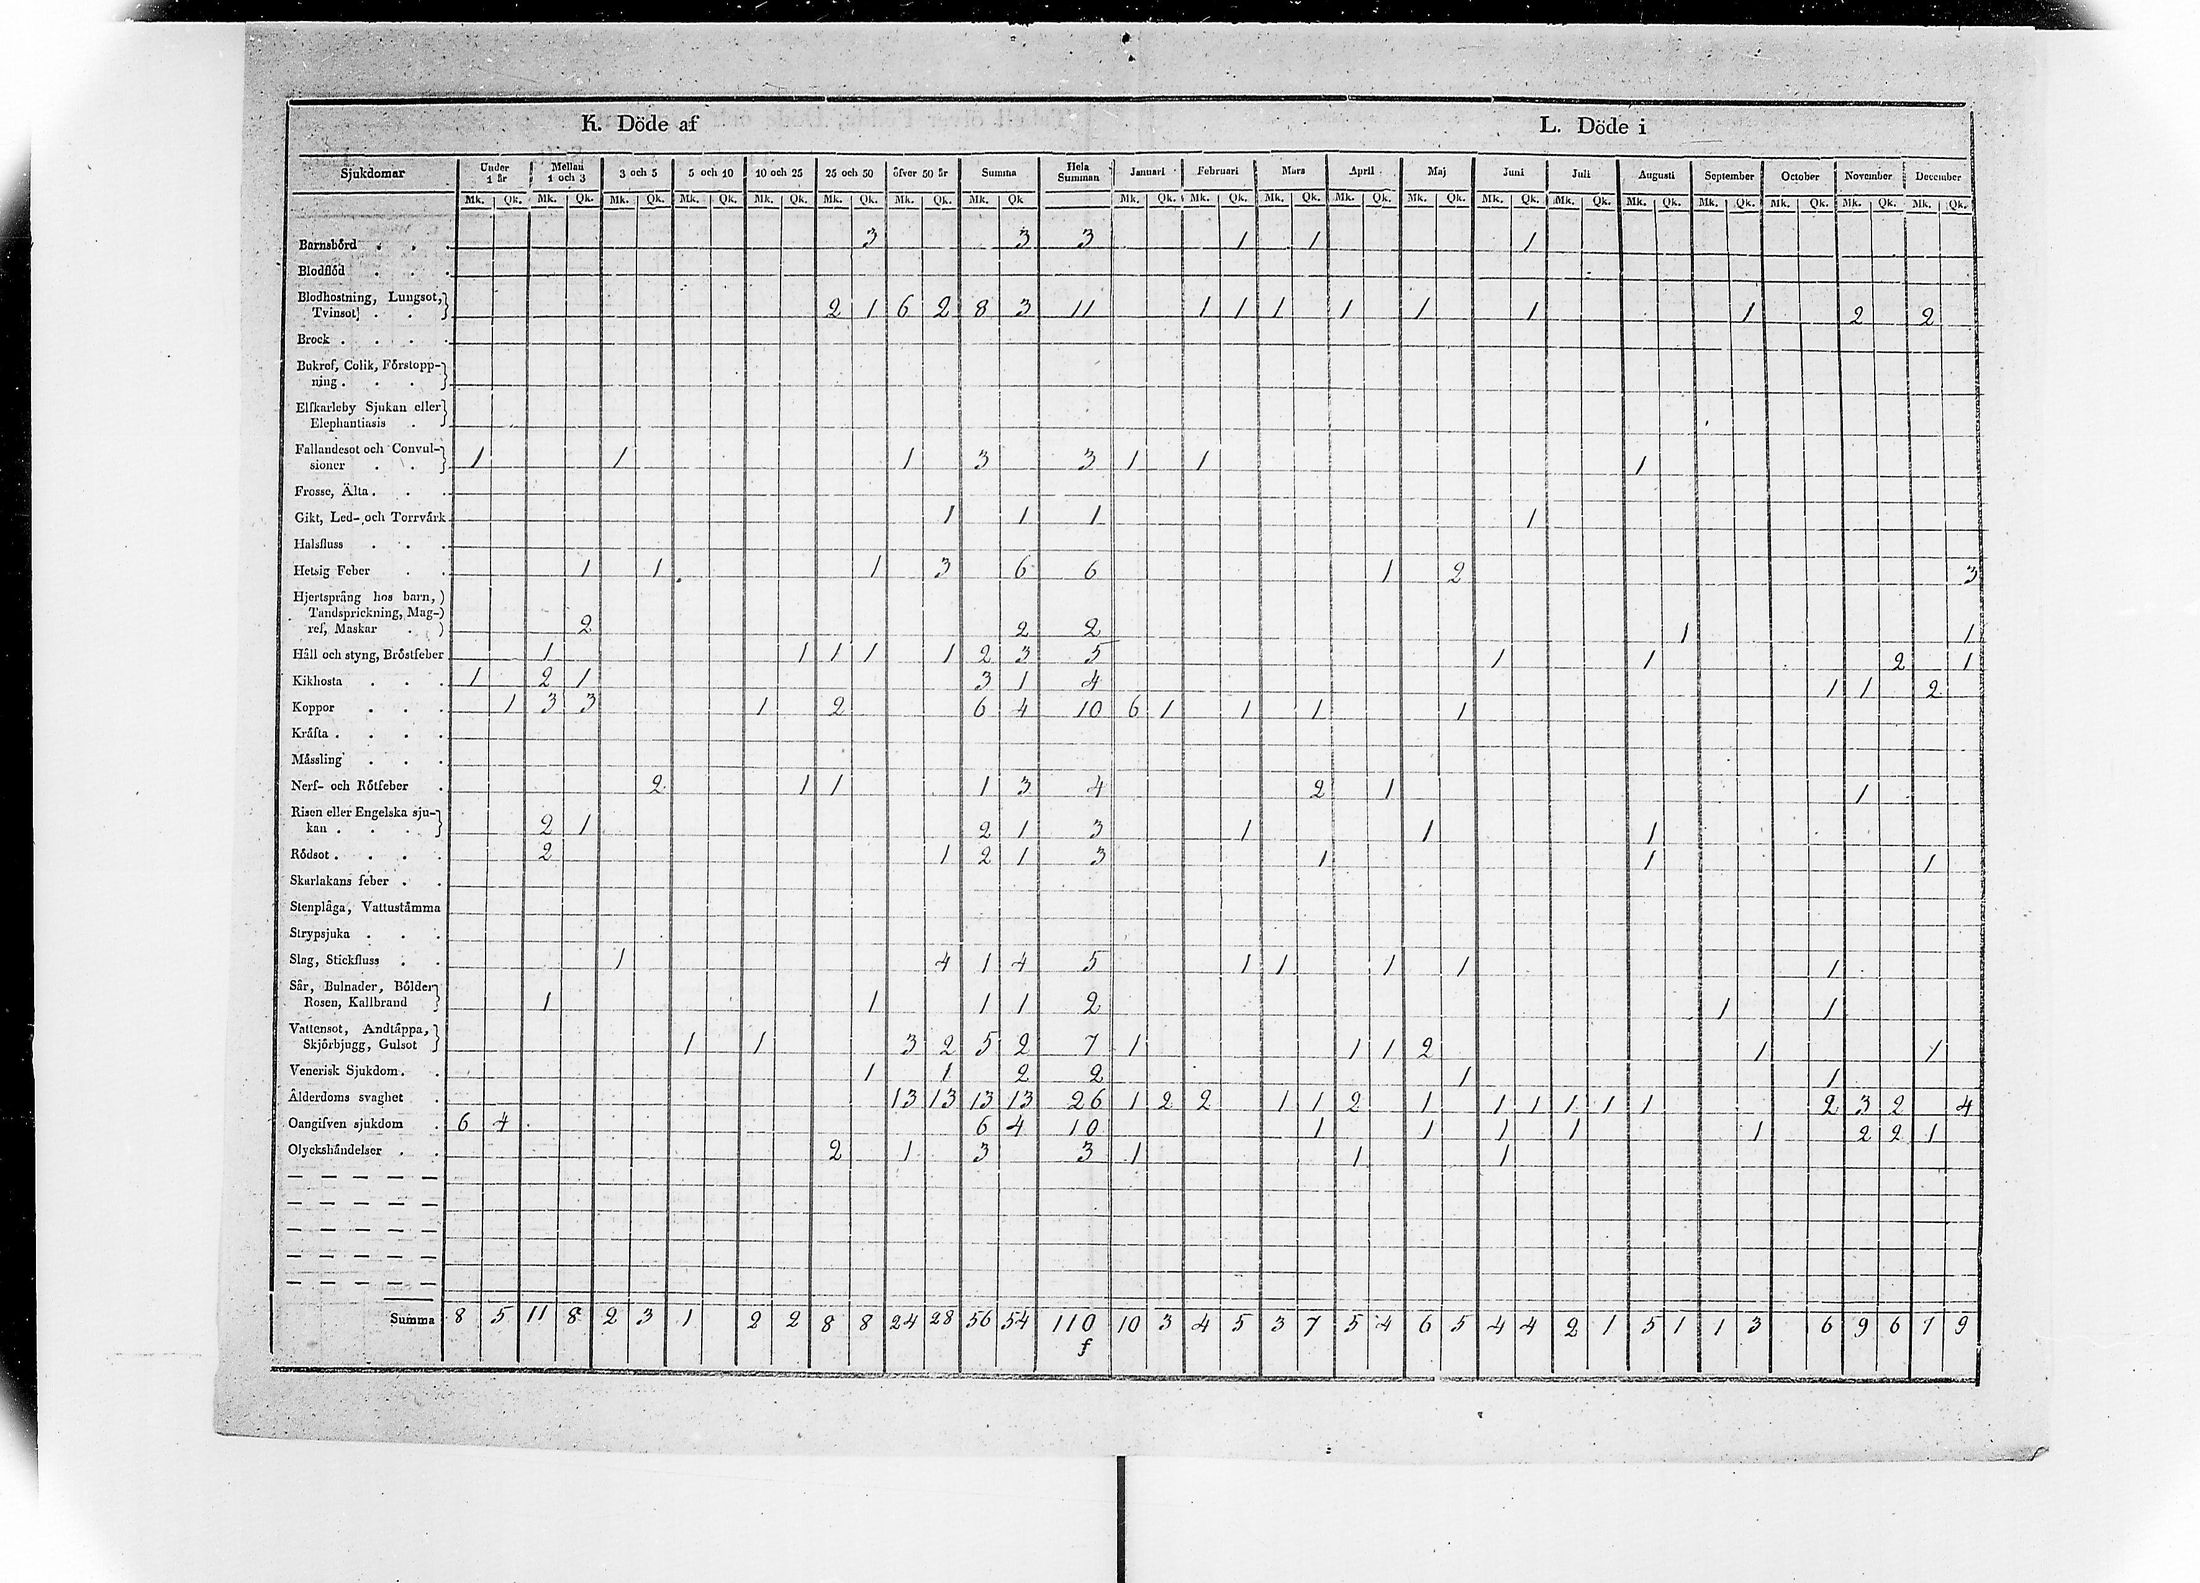 K. Döde af L. Döde i
Sjukdomar Under 1 år Mellan 1 och 3 3 och 5 5 och 10 10 och 25 25 och 50 öfver 50 år Summa Hela Summan Januari Februari Mars April Maj Juni Juli Augusti September October November December
Mk. Qk. Mk. Qk. Mk. Qk. Mk. Qk. Mk. Qk. Mk. Qk. Mk. Qk. Mk. Qk Mk. Qk. Mk. Qk. Mk. Qk. Mk. Qk. Mk. Qk. Mk. Qk. Mk. Qk. Mk. Qk. Mk. Qk. Mk. Qk. Mk. Qk. Mk. Qk.
Barnsbörd . . . 3 3 3 1 1 1
Blodflöd . . .
Blodhostning, Lungsot,
Tvinsot . . 2 1 6 2 8 3 11 1 1 1 1 1 1 1 2 2
Brock . . . .
Bukref, Colik, Förstopp-
ning . . .
Elfkarleby Sjukan eller
Elephantiasis .
Fallandesot och Convul-
sioner . . 1 1 1 3 3 1 1 1
Frosse, Älta . . .
Gikt, Led- och Torrvärk 1 1 1 1
Halsfluss . . .
Hetsig Feber . . 1 1 1 3 6 6 1 2 3
Hjertsprång hos barn,
Tandsprickning, Mag-
ref, Maskar . 2 2 2 1 1
Håll och styng, Bröstfeber 1 1 1 1 1 2 3 5 1 1 2 1
Kikhosta . . . 1 2 1 3 1 4 1 1 2
Koppor . . . 1 3 3 1 2 6 4 10 6 1 1 1 1
Kräfta . . . .
Mässling . . .
Nerf- och Rötfeber . 2 1 1 1 3 4 2 1 1
Risen eller Engelska sju-
kan . . . 2 1 2 1 3 1 1 1
Rödsot . . . . 2 1 2 1 3 1 1 1
Skarlakans feber . .
Stenplåga, Vattustämma
Strypsjuka . . .
Slag, Stickfluss . . 1 4 1 4 5 1 1 1 1 1
Sår, Bulnader, Bölder
Rosen, Kallbrand 1 1 1 1 2 1 1
Vattensot, Andtäppa,
Skjörbjugg, Gulsot 1 1 3 2 5 2 7 1 1 1 2 1 1
Venerisk Sjukdom . . 1 1 2 2 1 1
Ålderdoms svaghet . 13 13 13 13 26 1 2 2 1 1 2 1 1 1 1 1 1 2 3 2 4
Oangifven sjukdom . 6 4 6 4 10 1 1 1 1 1 2 2 1
Olyckshändelser . . 2 1 3 3 1 1 1
Summa 8 5 11 8 2 3 1 2 2 8 8 24 28 56 54 110 10 3 4 5 3 7 5 4 6 5 4 4 2 1 5 1 1 3 6 9 6 7 9
f